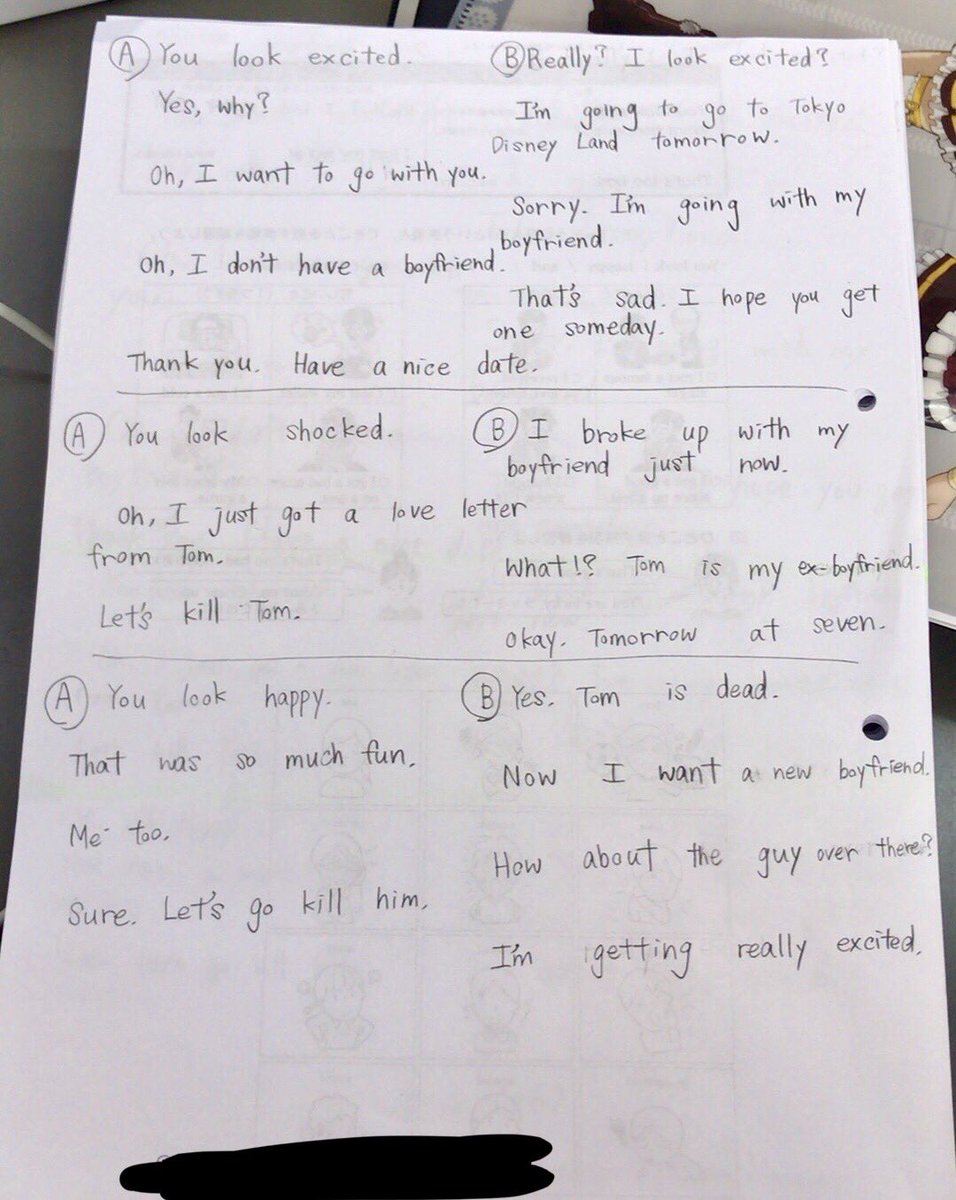 Ⓐ You look excited.
Ⓑ Really? I look excited?
Yes, why?
I'm going to go to Tokyo
Disney Land tomorrow.
Oh, I want to go with you.
Sorry. I'm going with my
boyfriend.
Oh, I don't have a boyfriend.
That's sad. I hope you get
one someday.
Thank you. Have a nice date.
Ⓐ You look shocked.
Ⓑ I broke up with my
boyfriend just now.
Oh, I just got a love letter
from Tom.
What!? Tom is my ex-boyfriend.
Let's kill Tom.
Okay. Tomorrow at seven.
Ⓐ You look happy.
Ⓑ Yes. Tom is dead.
That was so much fun.
Now I want a new boyfriend.
Me too.
How about the guy over there?
Sure. Let's go kill him.
I'm getting really excited.